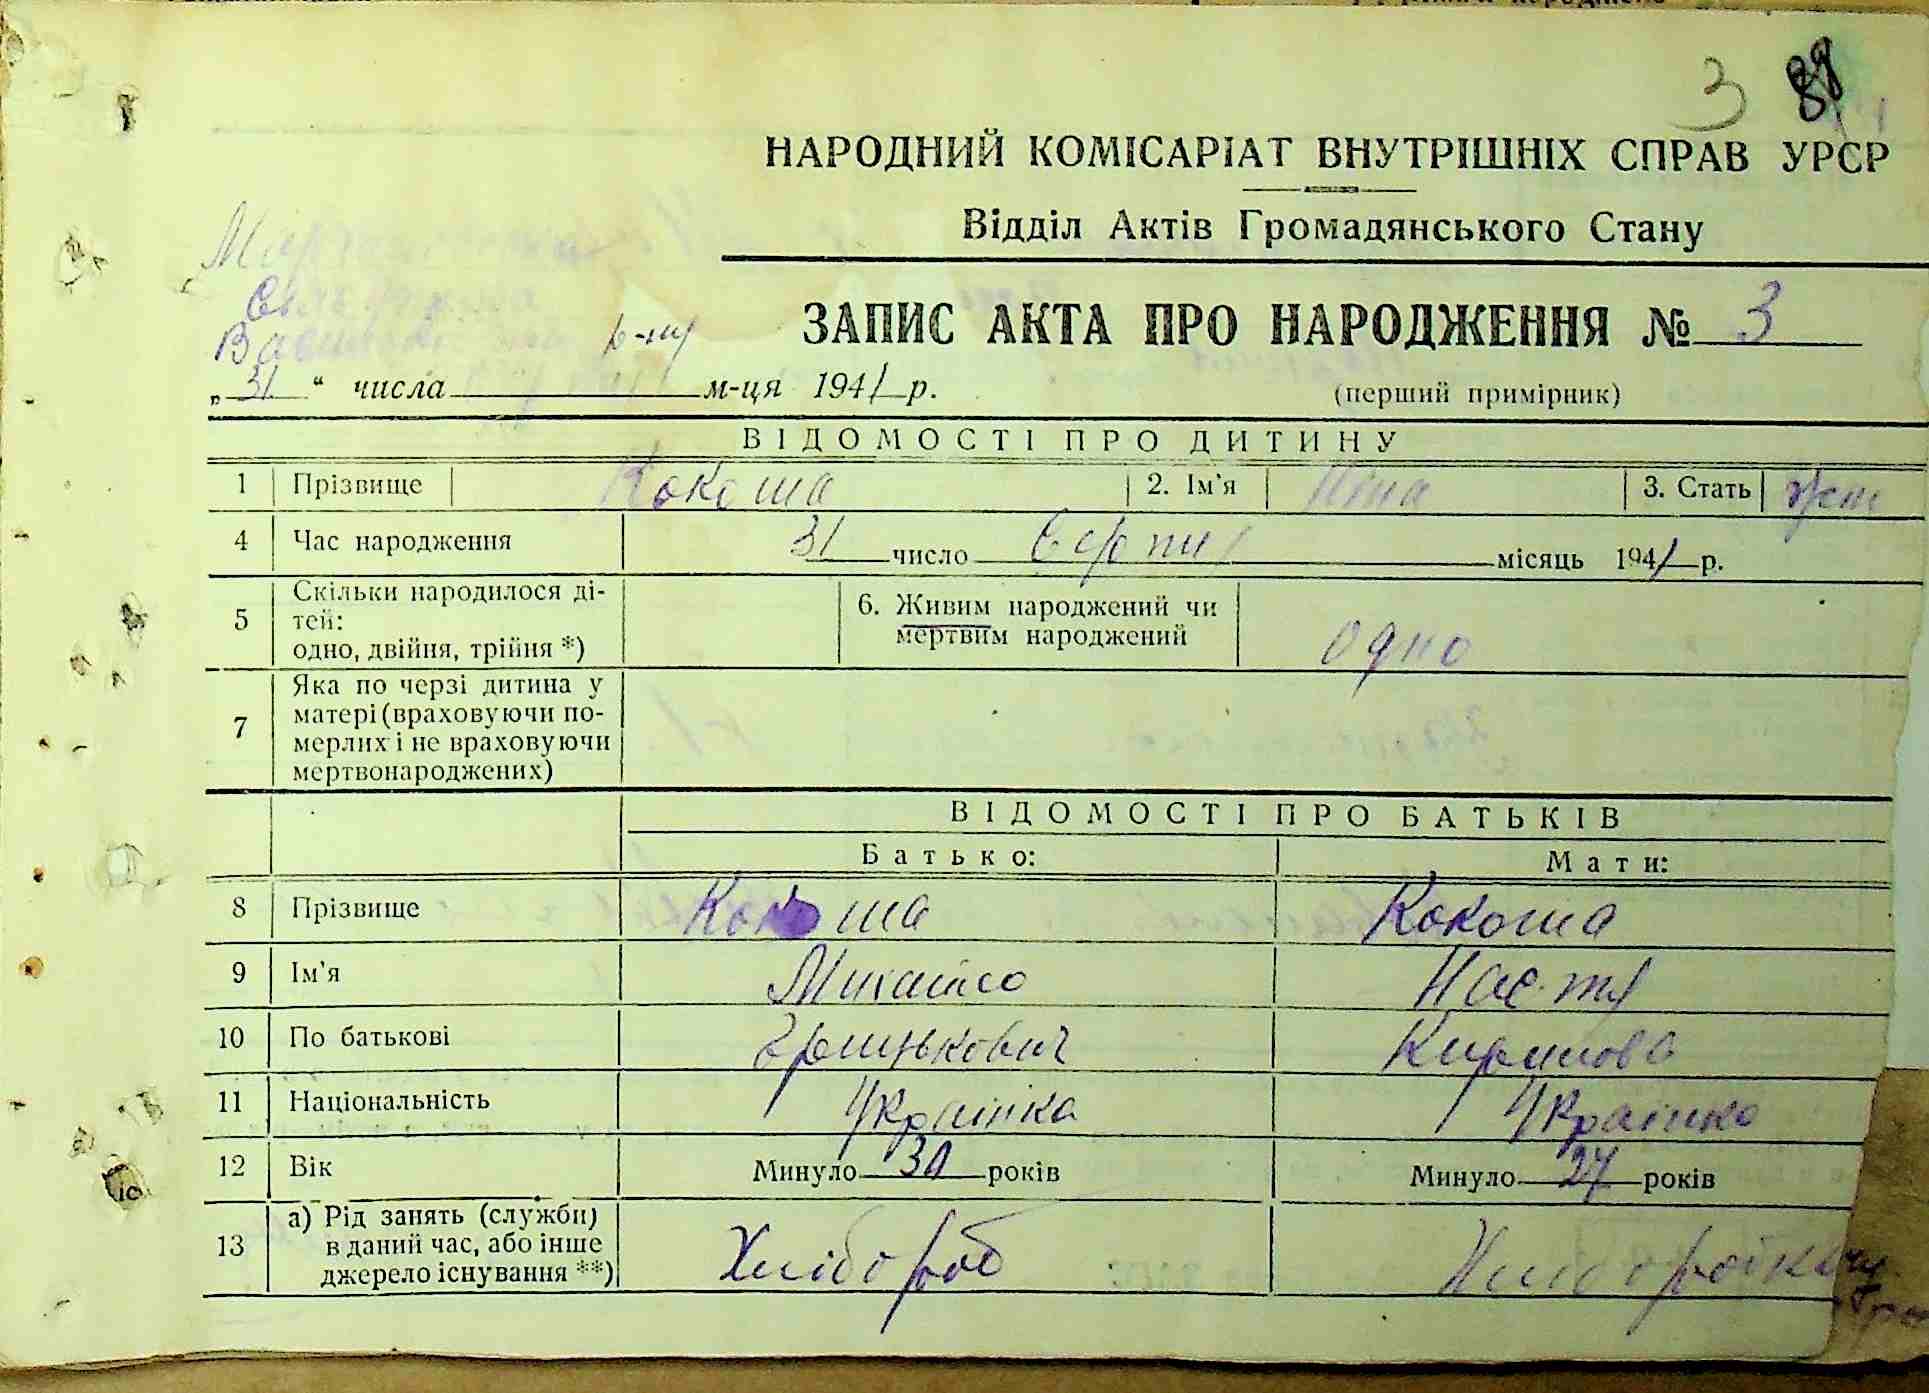 3 88
НАРОДНИЙ КОМІСАРІАТ ВНУТРІШНІХ СПРАВ УРСР
Відділ Актів Громадянського Стану
ЗАПИС АКТА ПРО НАРОДЖЕННЯ № 3
р-ну
„31“ числа м-ця 1941 р. (перший примірник)
ВІДОМОСТІ ПРО ДИТИНУ
1 Прізвище Кокоша 2. Ім'я Ніна 3. Стать жін
4 Час народження 31 число Серпня місяць 1941 р.
5 Скільки народилося ді-
тей:
одно, двійня, трійня *) 6. Живим народжений чи
мертвим народжений одно
7 Яка по черзі дитина у
матері (враховуючи по-
мерлих і не враховуючи
мертвонароджених)
ВІДОМОСТІ ПРО БАТЬКІВ
Батько: Мати:
8 Прізвище Кокоша Кокоша
9 Ім'я Михайло Настя
10 По батькові Грицькович Кирилова
11 Національність Українка Українка
12 Вік Минуло 30 років Минуло 27 років
13 а) Рід занять (служби)
в даний час, або інше
джерело існування **) Хлібороб Хлібороб